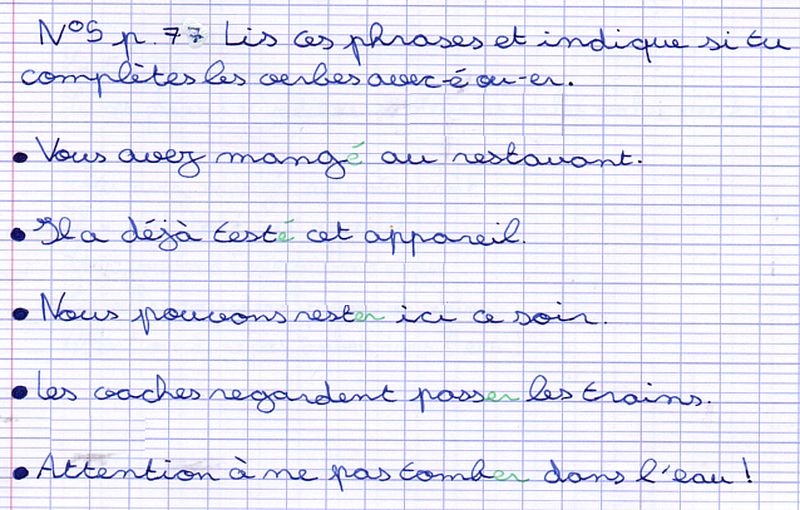 N°5 p. 77 Lis ces phrases et indique si tu
complètes les verbes avec -é ou -er.
• Vous avez mangé au restaurant.
• Il a déjà testé cet appareil.
• Nous pouvons rester ici ce soir.
• Les vaches regardent passer les trains.
• Attention à ne pas tomber dans l'eau !